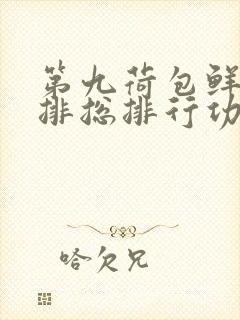 第九荷包鲜
排总排行功
哈欠兄